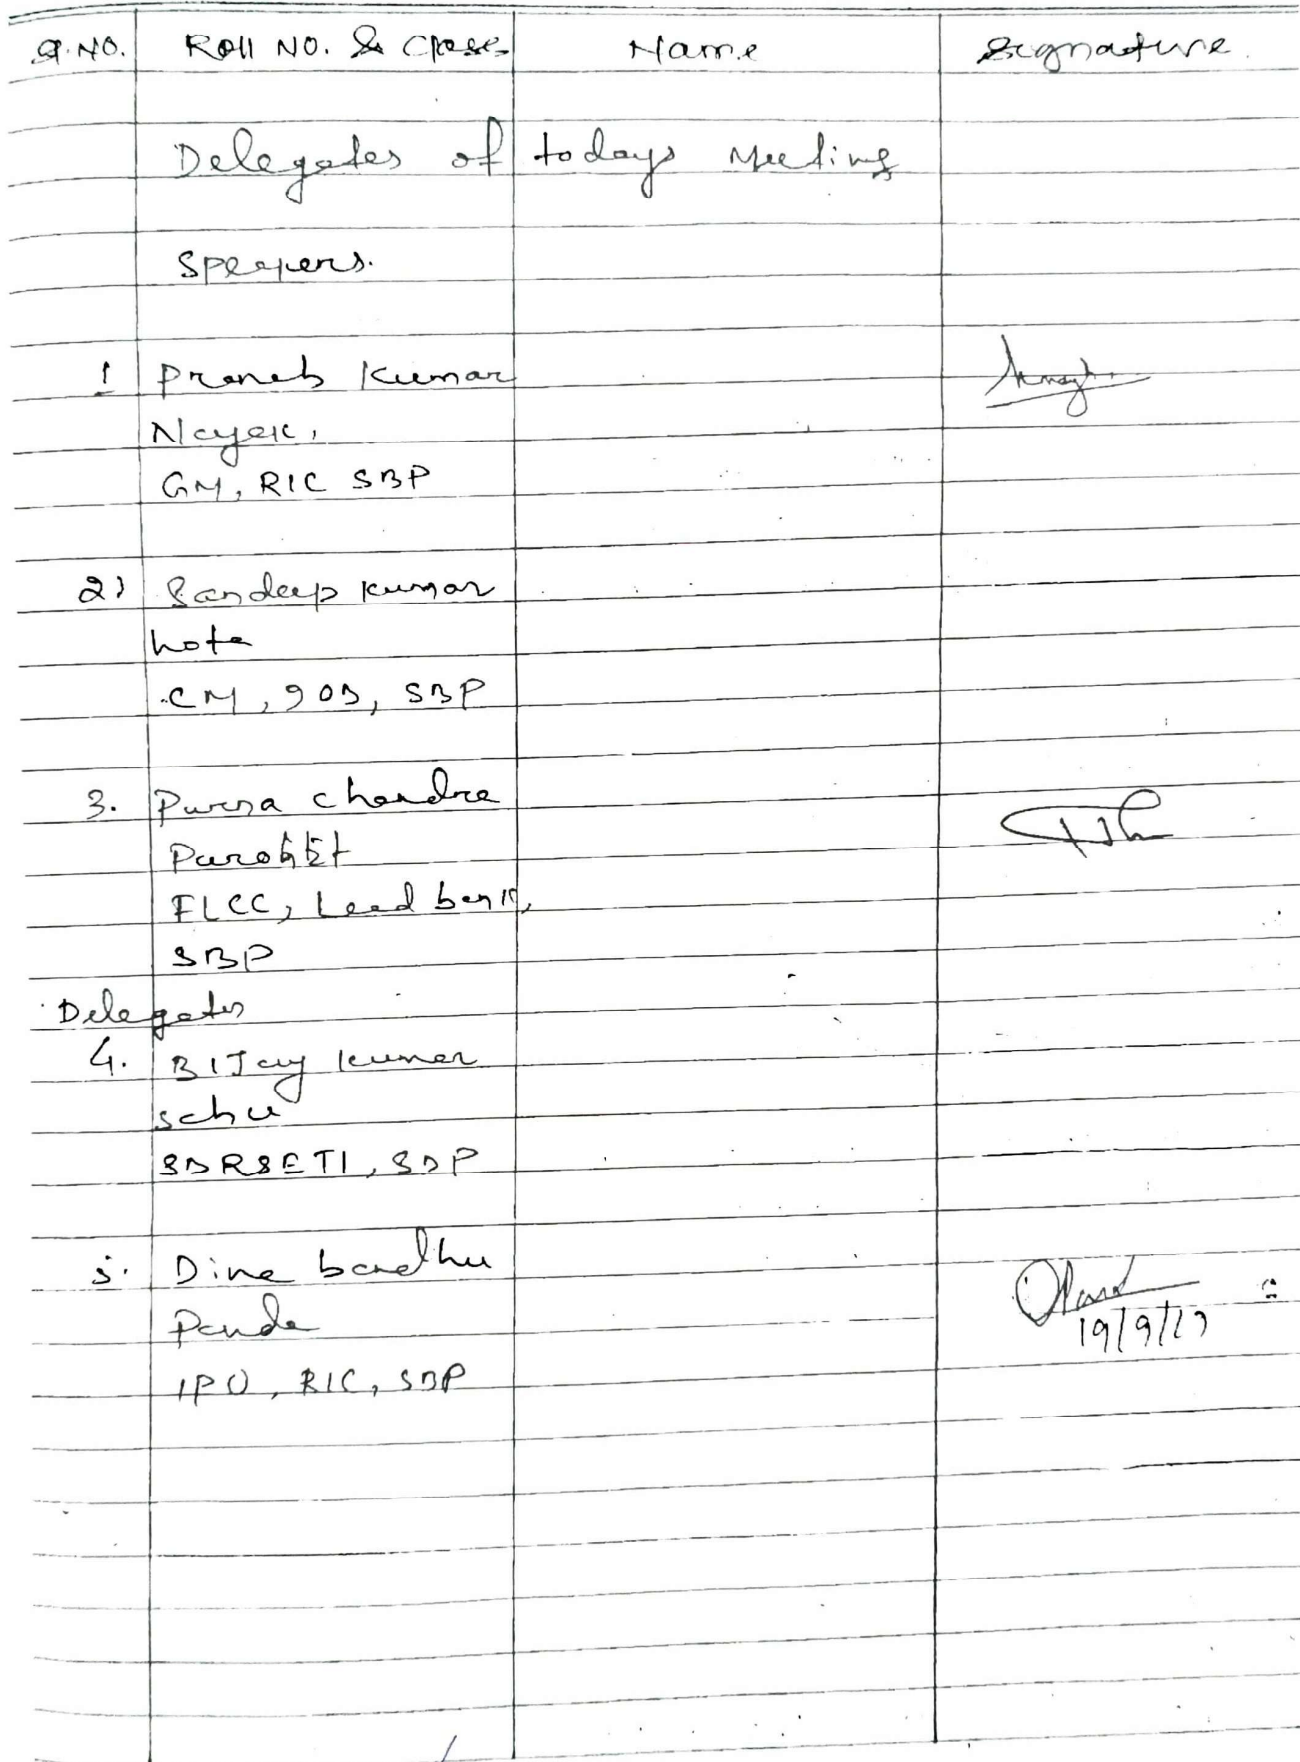 Sl. NO. Roll NO. & Class Name Signature
Delegates of todays Meeting
Speakers.
1 Pranab Kumar
Nayak,
GM, RIC SBP
2) Sandeep Kumar
hota
CM, BOB, SBP
3. Purna chandra
Parohit
FLCC, Lead bank,
SBP
Delegates
4. BIJay Kumar
sahu
SBRSETI, SBP
5. Dina bandhu
Panda
IPO, RIC, SBP
19/9/19